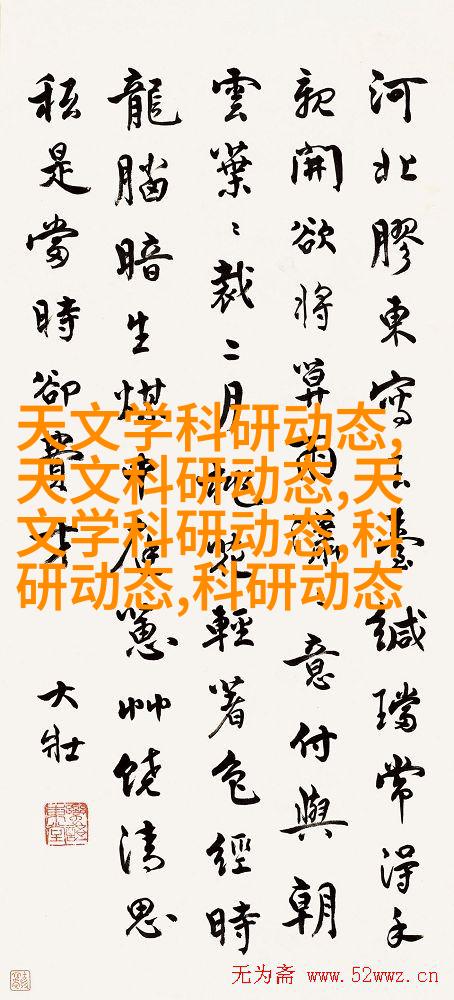 河北膠東寫臺緘璫常得手
親開欲將雨意付與朝
雲葉〻裁二月桃花輕著色經時
龍腦暗生煤中艸饒清思
秖是當時卻費才
大壯
天文学科研动态,
天文科研动态,天
文学科研动态,科
研动态,科研动态
无为斋 www.52wwz.cn